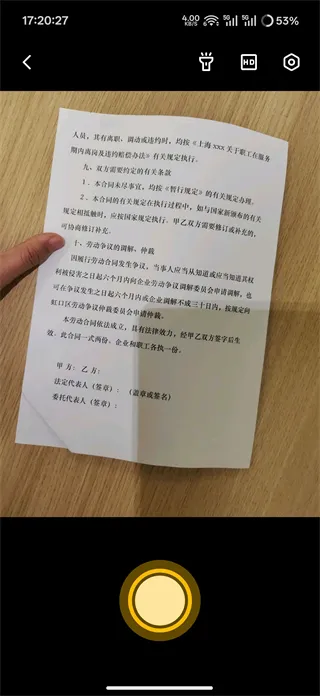 17:20:27
4.00 KB/S
6
5G
5G
53%
HD
人员，其有离职、调动或违约时，均按《上海 xxx 关于职工在服务
期内离岗及违约赔偿办法》有关规定执行。
九、双方需要约定的有关条款
1．本合同未尽事宜，均按《暂行规定》的有关规定办理。
2．本合同的有关规定在执行过程中，如与国家新颁布的有关
规定相抵触时，应按国家规定执行。甲乙双方需要修订或补充的，
可协商修订补充。
十、劳动争议的调解、仲裁
因履行劳动合同发生争议，当事人应当从知道或应当知道其权
利被侵害之日起六个月内向企业劳动争议调解委员会申请调解，也
可在争议发生之日起六个月内或企业调解不成三十日内，按规定向
虹口区劳动争议仲裁委员会申请仲裁。
本劳动合同依法成立，具有法律效力，经甲乙双方签字后生
效。此合同一式两份。企业和职工各执一份。
甲 方： 乙 方：
法定代表人（签章）： （盖章或签名）
委托代表人（签章）：